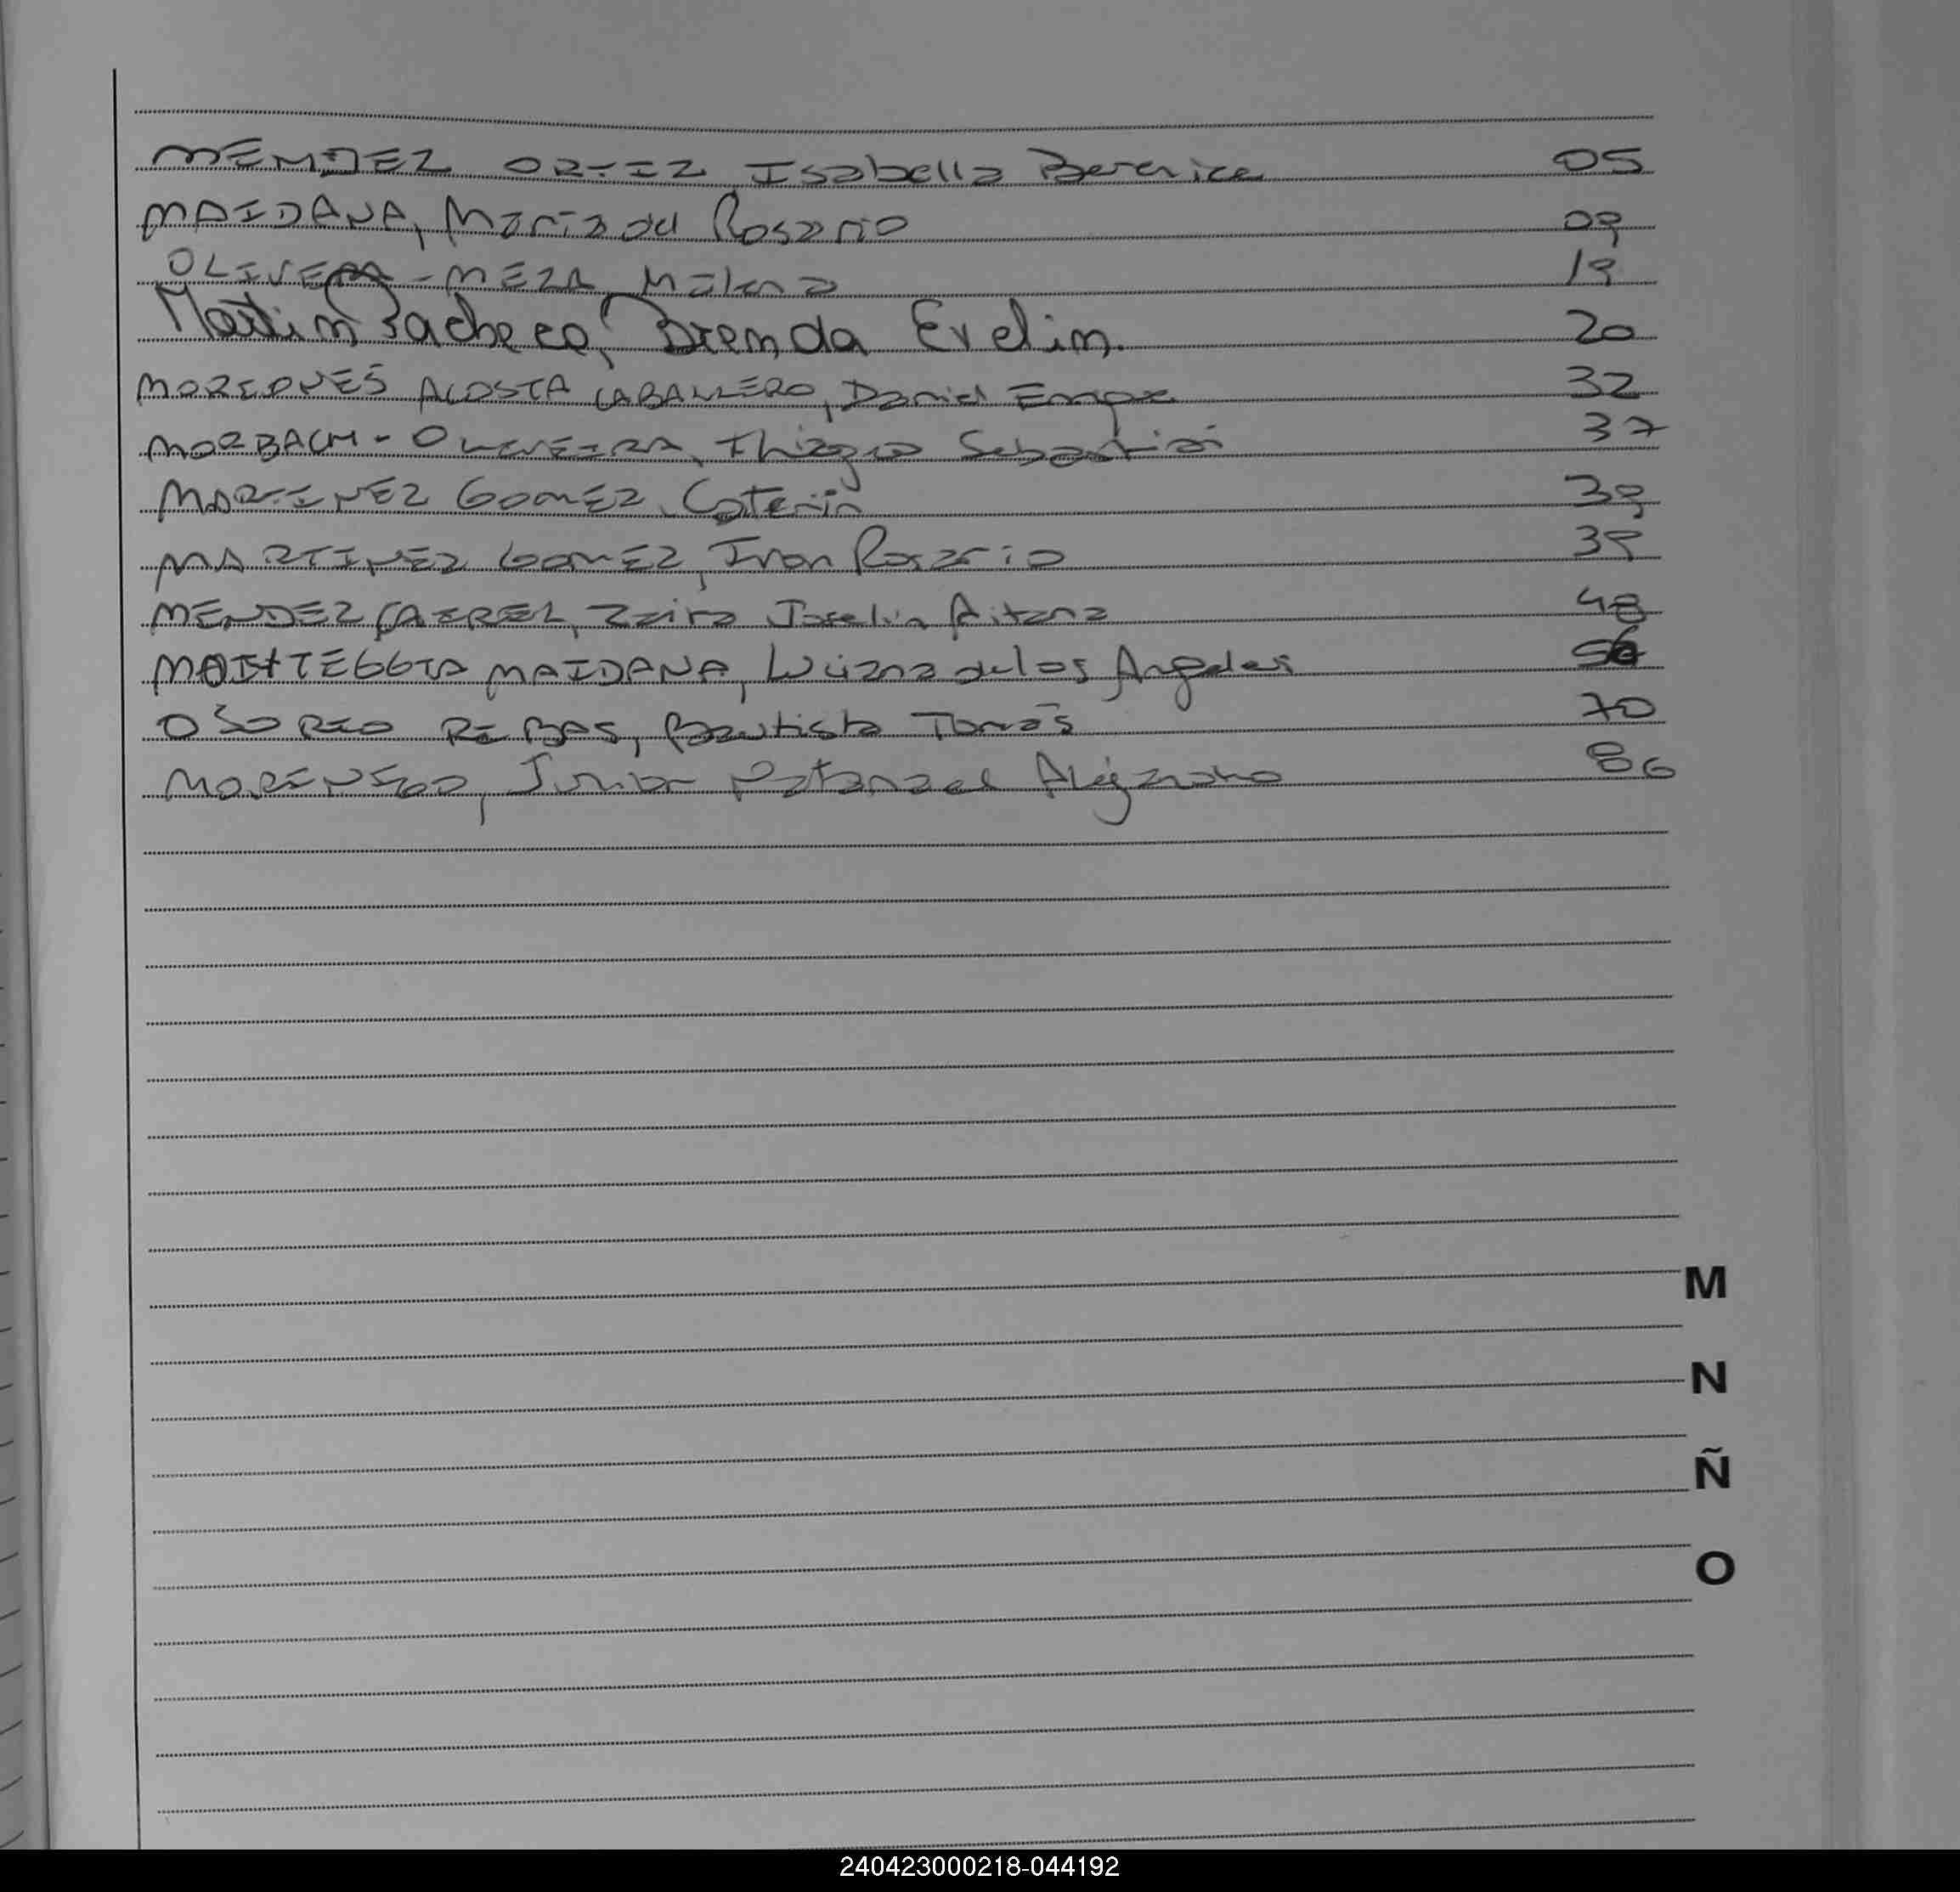 MENDEZ ORTIZ, Isabella Berenice 05
MAIDANA, Maria del Rosario 09
OLIVERA - MEZA, Milena 19
Martin Pacheco, Brenda Evelin. 20
ACOSTA CABALLERO, Daniel Enrique 32
MORBACH - OLIVEIRA, Thiago Sebastián 37
MARTINEZ GOMEZ, Caterin 39
MARTINEZ GOMEZ, Ivan Rosario 39
MENDEZ Zaira Joselin Aitana 48
MAIDANA, Luciana de los Angeles 56
OSORIO RIBAS, Bautista Tomás 70
MORENIGO, Junior Natanael Alejandro 86
M
N
Ñ
O
240423000218-044192